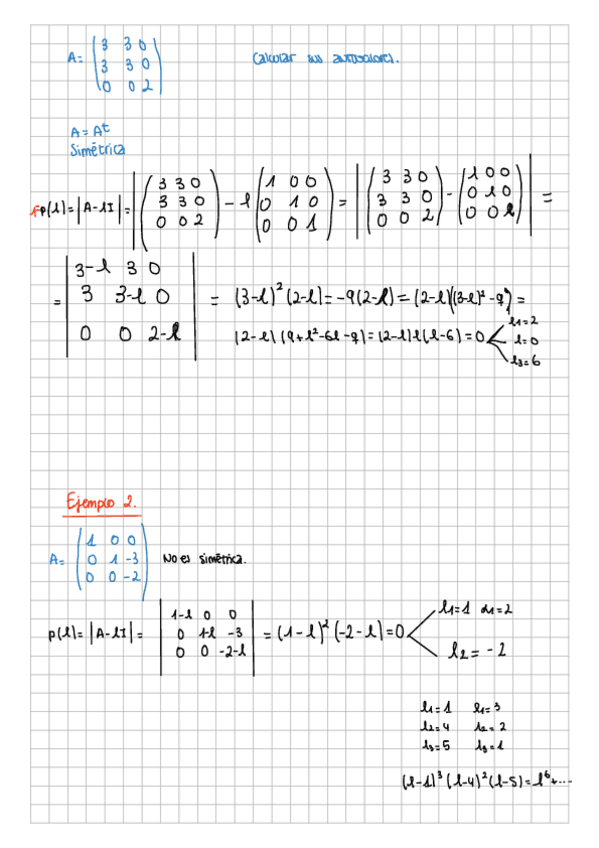 A= (3 3 0 / 3 3 0 / 0 0 2) Calcular sus autovalores.
A = Aᵗ
Simétrica
p(l)=|A-lI|= |(3 3 0 / 3 3 0 / 0 0 2) - l (1 0 0 / 0 1 0 / 0 0 1)| = |(3 3 0 / 3 3 0 / 0 0 2) - (l 0 0 / 0 l 0 / 0 0 l)| =
= |3-l 3 0 / 3 3-l 0 / 0 0 2-l| = (3-l)² (2-l)= -9(2-l) = (2-l)((3-l)² -9) =
(2-l) (9+l²-6l-9)=(2-l)l(l-6)=0 l1=2 l=0 l3=6
Ejemplo 2.
A= (1 0 0 / 0 1 -3 / 0 0 -2) No es simétrica.
p(l)= |A-lI|= |1-l 0 0 / 0 1-l -3 / 0 0 -2-l| = (1-l)² (-2-l)=0 l1=1 α1=2 l2=-2
l1=1 α1=3
l2=4 α2=2
l3=5 α3=1
(l-1)³ (l-4)² (l-5)= l⁶+....